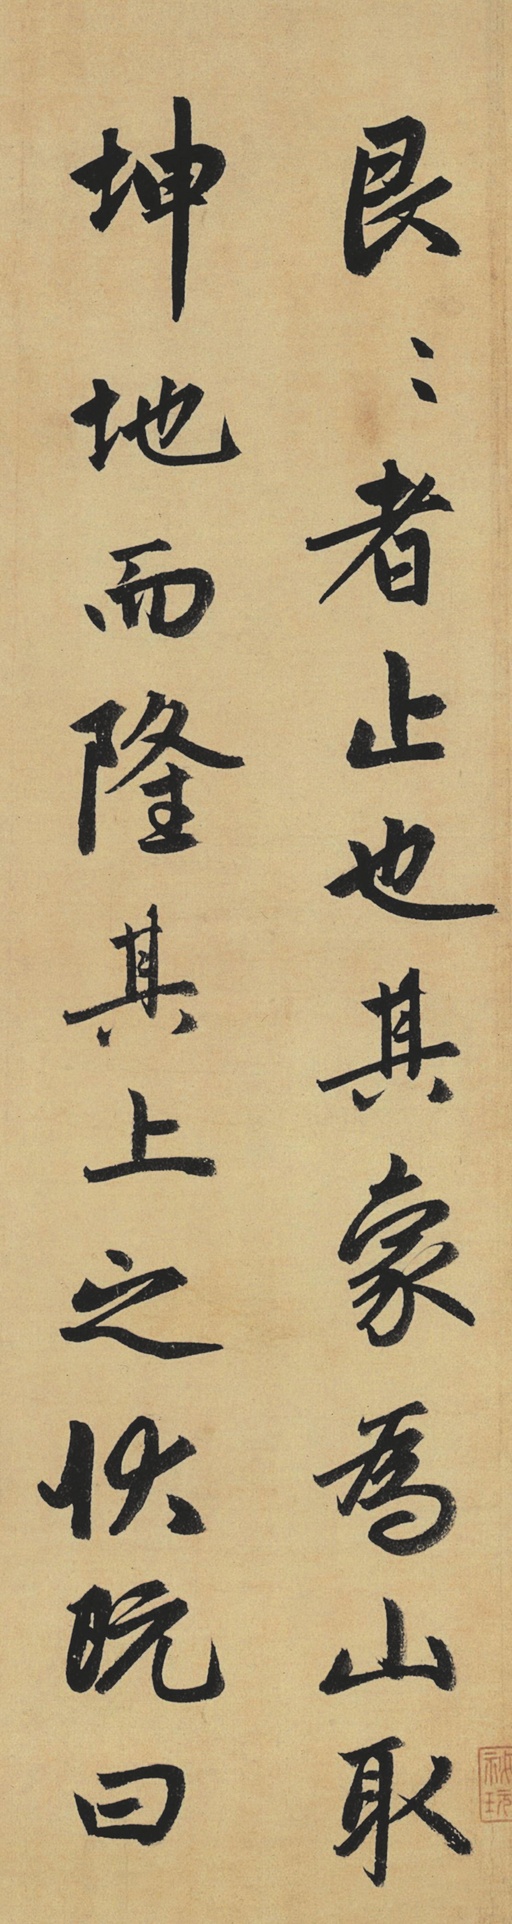 艮〻者止也其象為山取
坤地而隆其上之状既曰